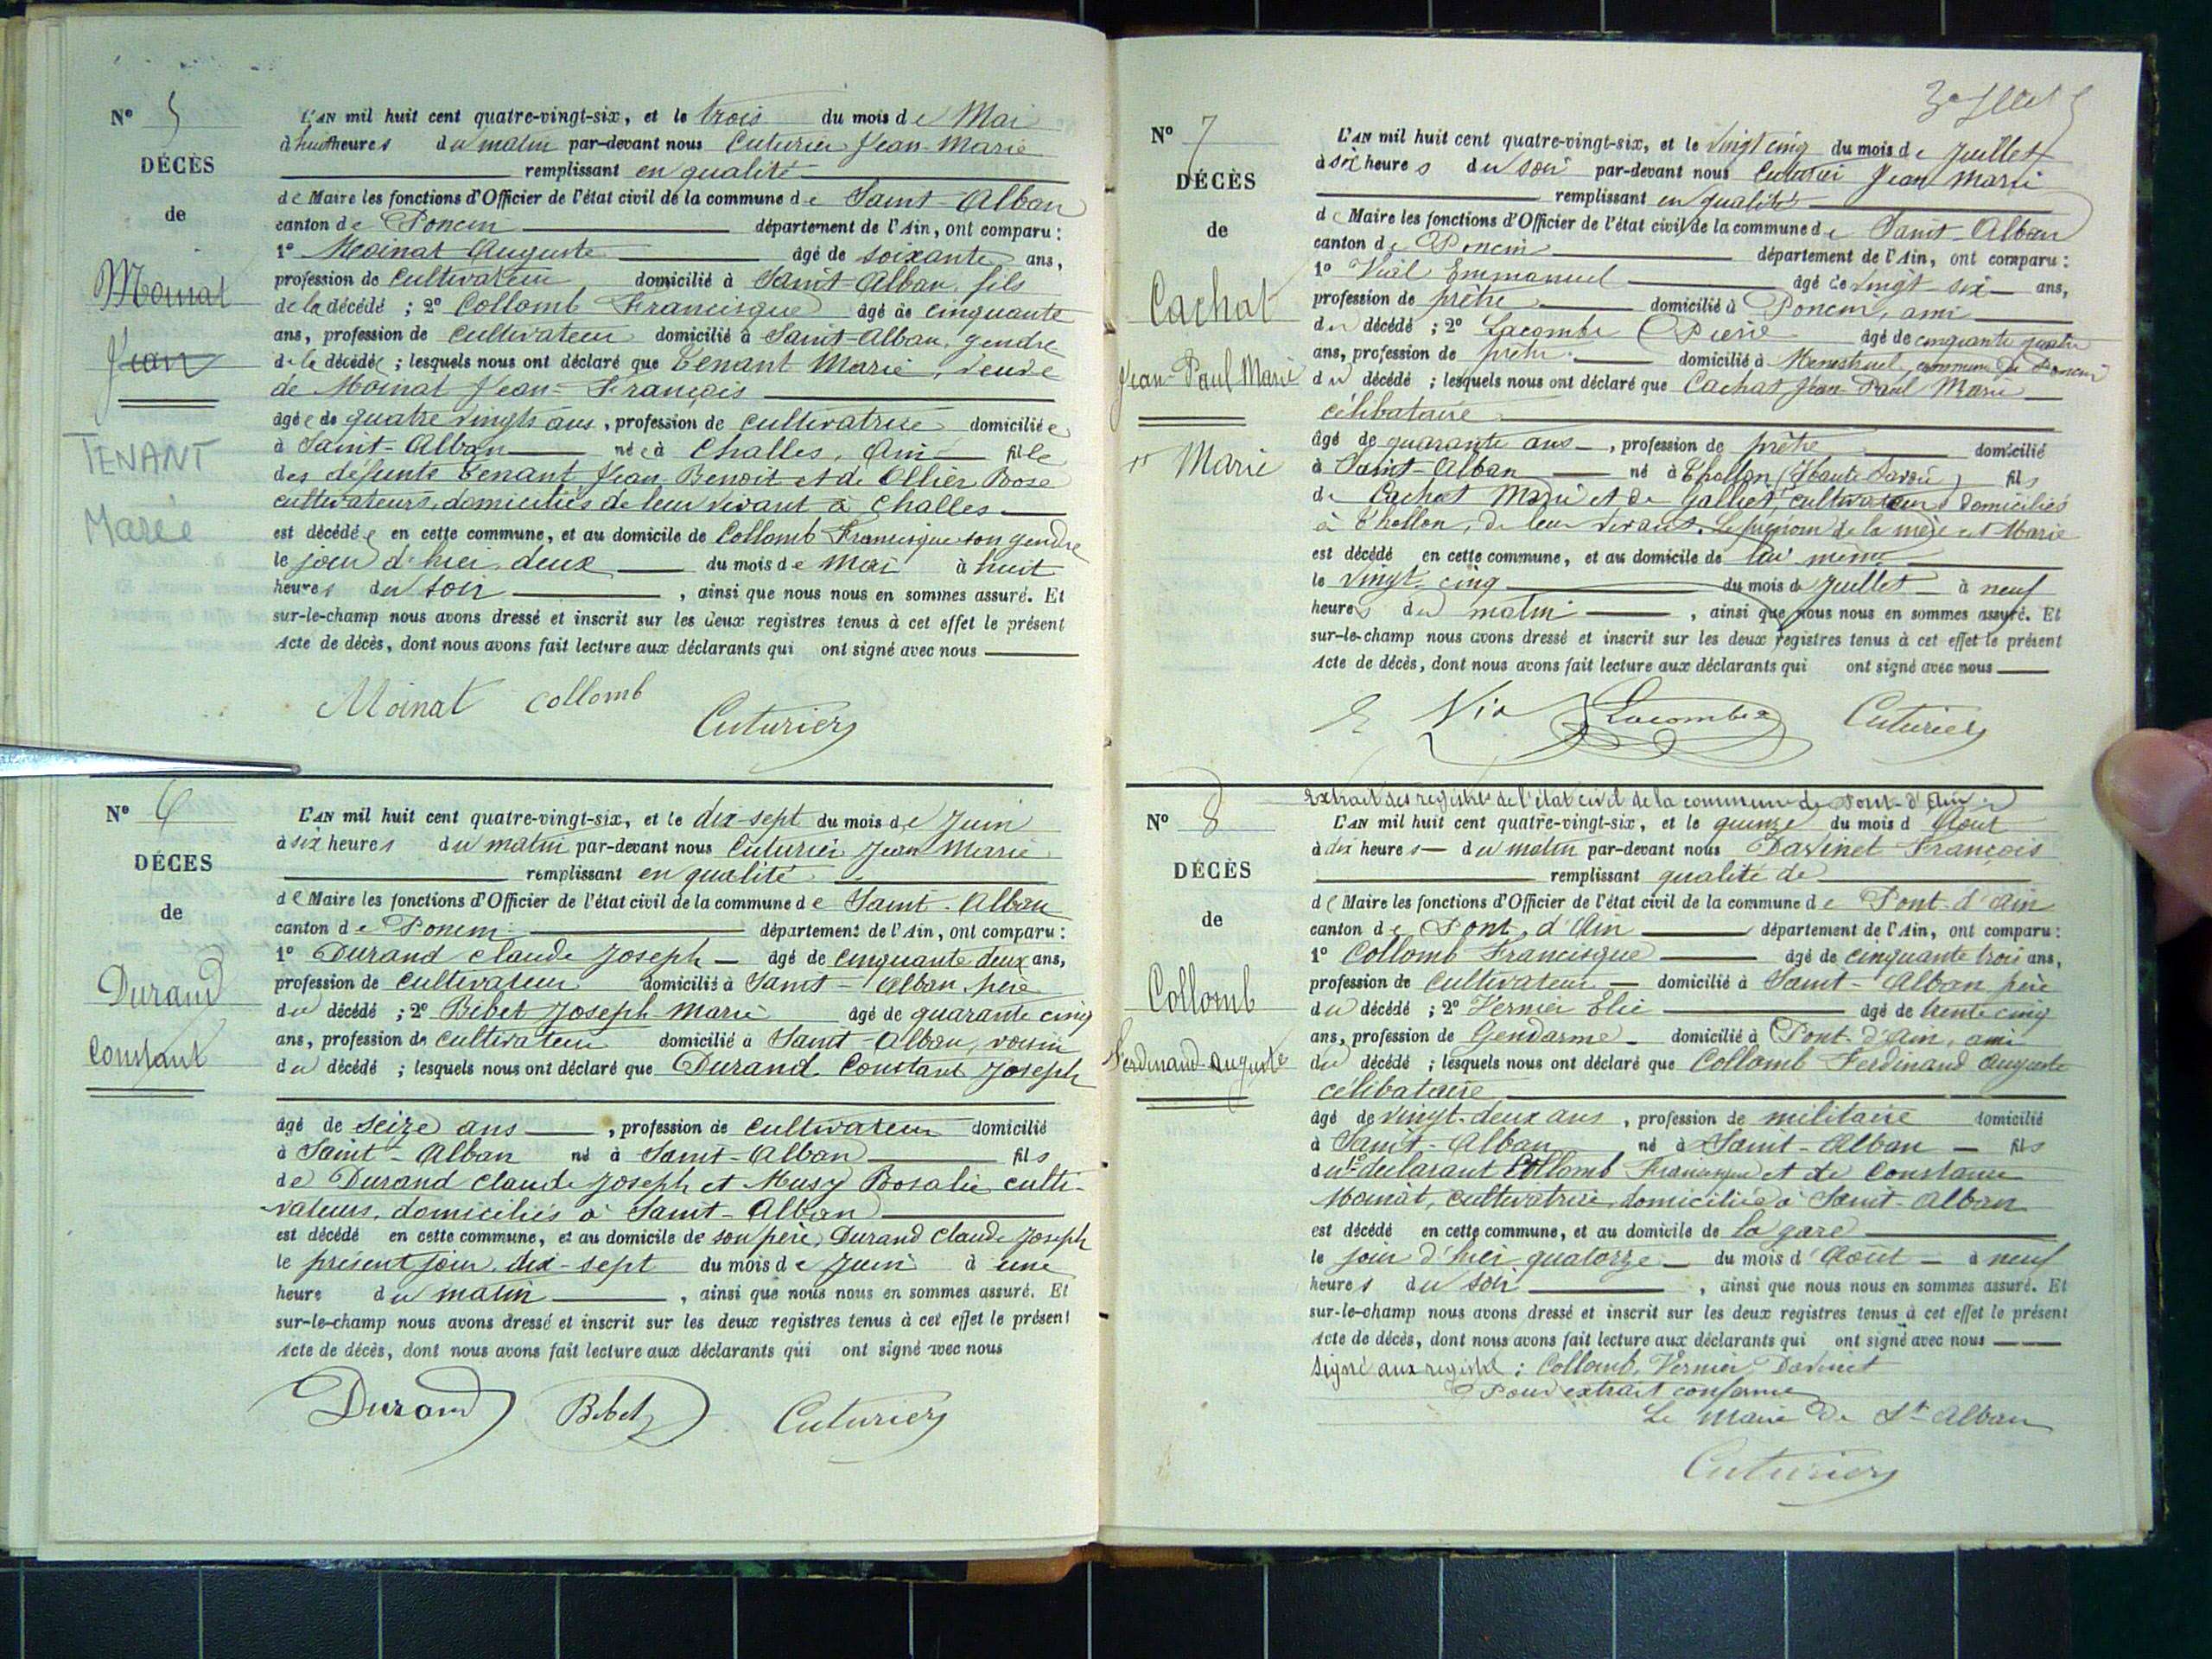 N° 5
DÉCÈS
de
Moinat
Jean
TENANT
Marie
L'AN mil huit cent quatre-vingt-six, et le trois du mois de Mai
à huit heures du matin par-devant nous Cuturier Jean-Marie
remplissant en qualité
de Maire les fonctions d'Officier de l'état civil de la commune de Saint-Alban
canton de Poncin département de l'Ain, ont comparu :
1° Moinat Auguste âgé de soixante ans,
profession de cultivateur domicilié à Saint-Alban, fils
de la décédé ; 2° Collomb Francisque âgé de cinquante
ans, profession de cultivateur domicilié à Saint-Alban, gendre
de la décédée ; lesquels nous ont déclaré que Tenant Marie, veuve
de Moinat Jean-François
âgée de quatre vingts ans, profession de cultivatrice domiciliée
à Saint-Alban née à Challes, Ain fille
des défunts Tenant Jean Benoit et de Ollier Rose
cultivateurs, domiciliés de leur vivant à Challes
est décédée en cette commune, et au domicile de Collomb Francisque son gendre
le jour d'hier deux du mois de Mai à huit
heures du soir, ainsi que nous nous en sommes assuré. Et
sur-le-champ nous avons dressé et inscrit sur les deux registres tenus à cet effet le présent
Acte de décès, dont nous avons fait lecture aux déclarants qui ont signé avec nous
Moinat Collomb Cuturier
N° 6
DÉCÈS
de
Durand
Constant
L'AN mil huit cent quatre-vingt-six, et le dix-sept du mois de Juin
à six heures du matin par-devant nous Cuturier Jean Marie
remplissant en qualité
de Maire les fonctions d'Officier de l'état civil de la commune de Saint-Alban
canton de Poncin département de l'Ain, ont comparu :
1° Durand Claude Joseph âgé de cinquante deux ans,
profession de cultivateur domicilié à Saint-Alban, père
du décédé ; 2° Bibet Joseph Marie âgé de quarante cinq
ans, profession de cultivateur domicilié à Saint-Alban, voisin
du décédé ; lesquels nous ont déclaré que Durand Constant Joseph
âgé de seize ans, profession de cultivateur domicilié
à Saint-Alban né à Saint-Alban fils
de Durand Claude Joseph et Musy Rosalie culti-
vateurs, domiciliés à Saint-Alban
est décédé en cette commune, et au domicile de son père, Durand Claude Joseph
le présent jour, dix-sept du mois de Juin à une
heure du matin, ainsi que nous nous en sommes assuré. Et
sur-le-champ nous avons dressé et inscrit sur les deux registres tenus à cet effet le présent
Acte de décès, dont nous avons fait lecture aux déclarants qui ont signé avec nous
Durand Bibet Cuturier
N° 7
DÉCÈS
de
Cachat
Jean-Paul Marie
Marie
L'AN mil huit cent quatre-vingt-six, et le vingt cinq du mois de Juillet
à six heures du soir par-devant nous Cuturier Jean Marie
remplissant en qualité
de Maire les fonctions d'Officier de l'état civil de la commune de Saint-Alban
canton de Poncin département de l'Ain, ont comparu :
1° Vial Emmanuel âgé de vingt-six ans,
profession de prêtre domicilié à Poncin, ami
du décédé ; 2° Lacombe Pierre âgé de cinquante quatre
ans, profession de prêtre domicilié à Menestruel, commune de Poncin
du décédé ; lesquels nous ont déclaré que Cachat Jean-Paul Marie
célibataire
âgé de quarante ans, profession de prêtre domicilié
à Saint-Alban né à Thollon (Haute Savoie) fils
de Cachat Marie et de Galliet, cultivateurs domiciliés
à Thollon, de leur vivant. Le prénom de la mère est Marie
est décédé en cette commune, et au domicile de lui-même
le vingt-cinq du mois de Juillet à neuf
heures du matin, ainsi que nous nous en sommes assuré. Et
sur-le-champ nous avons dressé et inscrit sur les deux registres tenus à cet effet le présent
Acte de décès, dont nous avons fait lecture aux déclarants qui ont signé avec nous
Lacombe Cuturier
N° 8
DÉCÈS
de
Collomb
Ferdinand-Auguste
Extrait des registres de l'état civil de la commune de Pont-d'Ain
L'AN mil huit cent quatre-vingt-six, et le quinze du mois d Août
à dix heures du matin par-devant nous Davinet François
remplissant qualité de
de Maire les fonctions d'Officier de l'état civil de la commune de Pont-d'Ain
canton de Pont-d'Ain département de l'Ain, ont comparu :
1° Collomb Francisque âgé de cinquante trois ans,
profession de cultivateur domicilié à Saint-Alban, père
du décédé ; 2° Vernier Elie âgé de trente cinq
ans, profession de Gendarme domicilié à Pont-d'Ain, ami
du décédé ; lesquels nous ont déclaré que Collomb Ferdinand Auguste
célibataire
âgé de vingt-deux ans, profession de militaire domicilié
à Saint-Alban né à Saint-Alban fils
du 1er déclarant Collomb Francisque et de Constance
Moinat, cultivatrice, domiciliée à Saint-Alban
est décédé en cette commune, et au domicile de la gare
le jour d'hier quatorze du mois d'Août à neuf
heures du soir, ainsi que nous nous en sommes assuré. Et
sur-le-champ nous avons dressé et inscrit sur les deux registres tenus à cet effet le présent
Acte de décès, dont nous avons fait lecture aux déclarants qui ont signé avec nous
Signé aux registres : Collomb, Vernier, Davinet
Pour extrait conforme
Le Maire de St Alban
Cuturier